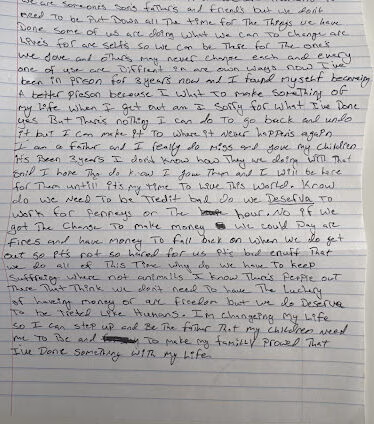 we are someones sons fathers and friends but we don't
need to be Put Down all The Time for The Things we have
Done some of us are doing what we can To change are
Lives for are selfs so we can be There for The ones
we love and others may never change each and every
one of use are Diffrent in are own ways. Now I've
been in Prison for 3 years now and I found myself becomeing
A better Preson because I what To make something OF
my Life when I get out am I sorry for what I've Done
yes But Theris nothing I can do To go back and undo
it but I can make it To where it Never happens again
I am a father and I really do miss and love my children
its Been 3 years I don't know how They are doing with That
said I hope Tha do know I love Them and I will be here
for Them untill its my Time To Live This World. Know
do we Need To be Tredit bad do we Deserva To
work for Penneys or The hour. No if we
got The Change To make money we could Pay are
fines and have money To fall back on when we do get
out so it's not so hared for us it's bad enuff That
we do all of This Time why do we have To keep
suffering where not animals I know Tha's PePle out
There That Think we don't need To have The Luckery
of haveing money or are freedom but we do Deserva
To be Treted Like Humans. I'm Changeing My Life
so I can step up and Be The father That my children Need
me To Be and To make my familly Prowed That
I've Done something with my Life.